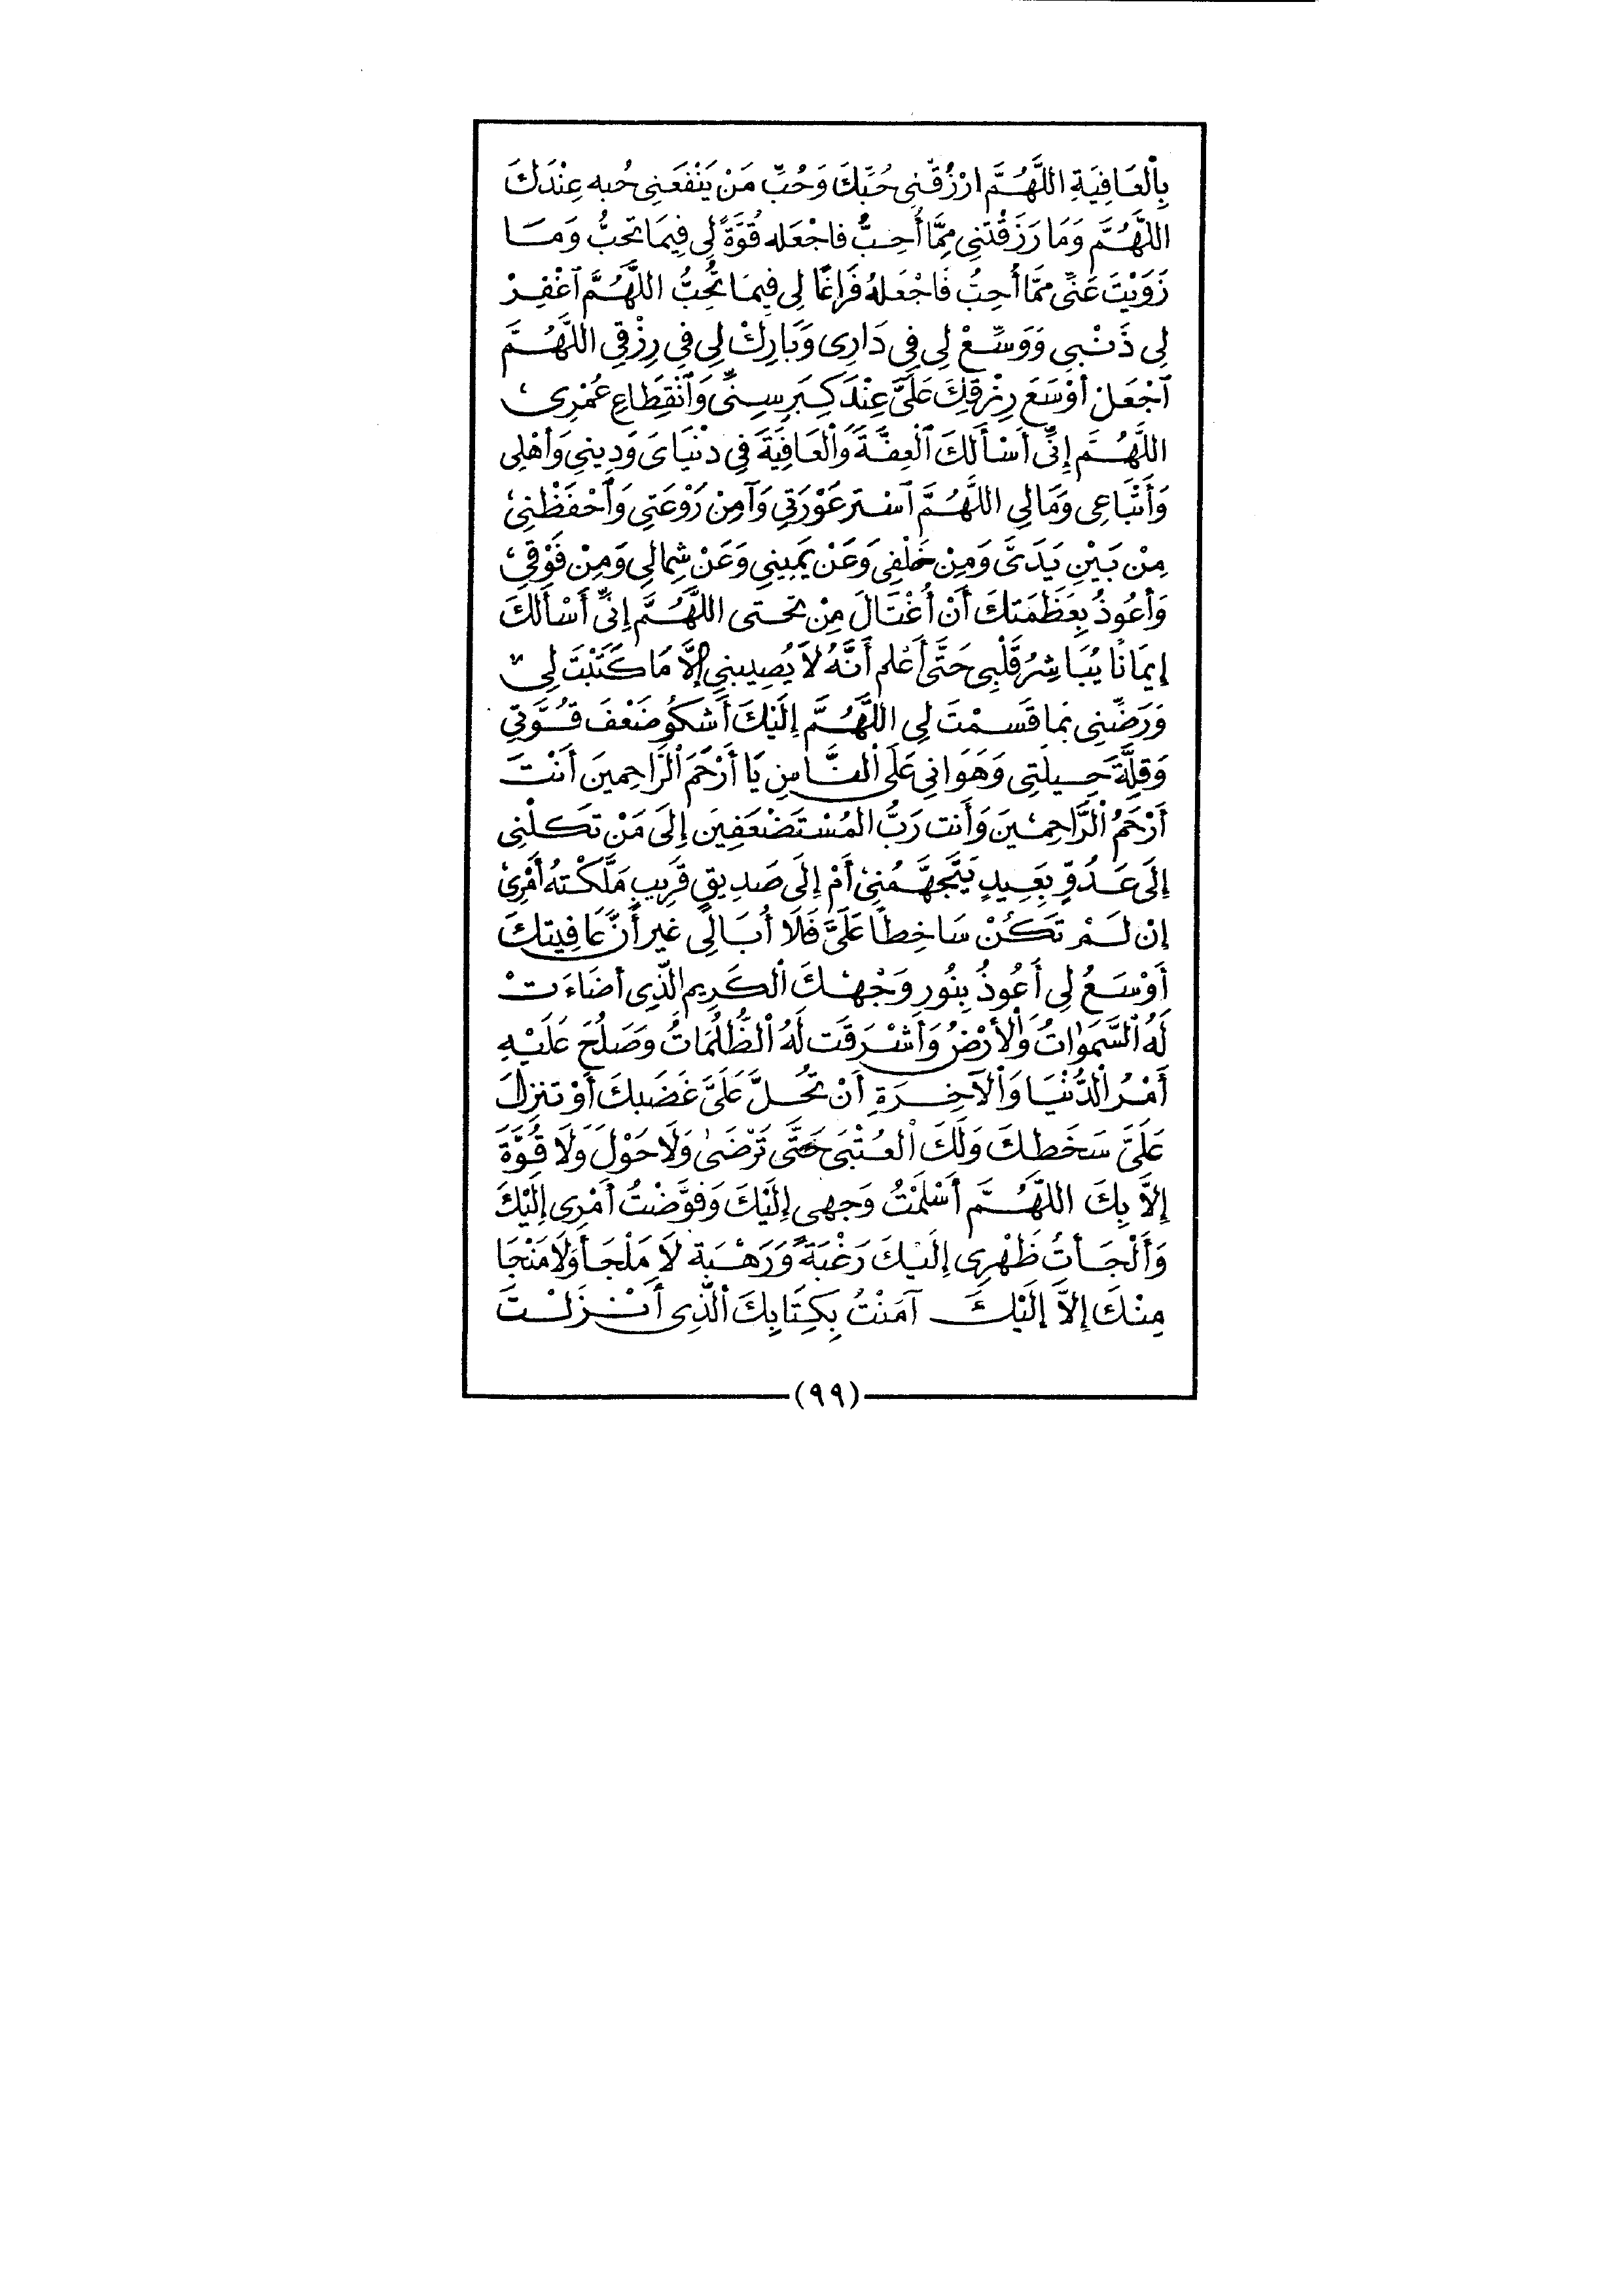 بِالْعَافِيَةِ اللَّهُمَّ ارْزُقْنِي حُبَّكَ وَحُبَّ مَنْ يَنْفَعَنِي حُبه عِنْدَكَ
اللَّهُمَّ وَمَا رَزَقْتَنِي مِمَّا أُحِبُّ فاجْعَله قُوَّةً لِي فِيمَا تحِبُّ وَمَا
زَوَيْتَ عَنِّي مِمَّا أُحِبُّ فَاجْعَلهُ فَرَاغًا لِي فِيمَا تُحِبُّ اللَّهُمَّ ٱغْفِرْ
لِي ذَنْبِي وَوَسِّعْ لِي فِي دَارِي وَبَارِكْ لِي فِي رِزْقِي اللَّهُمَّ
ٱجْعَلْ أَوْسَعَ رِزْقِكَ عَلَيَّ عِنْدَ كِبَرِ سِنِّي وَٱنْقِطَاعِ عُمْرِي
اللَّهُمَّ إِنِّي أَسْأَلكَ ٱلْعِفَّةَ وَالْعَافِيَةَ فِي دُنْيَايَ وَدِينِي وَأَهْلِي
وَأَتْبَاعِي وَمَالِي اللَّهُمَّ ٱسْتر عَوْرَتِي وَآمِنْ رَوْعَتِي وَٱحْفَظْنِي
مِنْ بَيْنِ يَدَيَّ وَمِنْ خَلْفِي وَعَنْ يَمِينِي وَعَنْ شِمالِي وَمِنْ فَوْقِي
وَأَعُوذُ بِعَظَمَتكَ أَنْ أُغْتَالَ مِنْ تحْتي اللَّهُمَّ إِنِّي أَسْأَلكَ
إِيمَانًا يُبَاشِرُ قَلْبِي حَتَّى أَعْلم أَنَّهُ لَا يُصِيبنِي إِلَّا مَا كَتَبْتَ لِي
وَرَضِّنِي بمَا قَسَمْتَ لِي اللَّهُمَّ إِلَيْكَ أَشكُو ضَعْفَ قُوَّتِي
وَقِلَّةَ حِيلَتِي وَهَوَانِي عَلَى الْنَّاسِ يَا أَرْحَمَ الْرَّاحِمِينَ أَنْتَ
أَرْحَمُ الْرَّاحِمِينَ وَأَنت رَبُّ المُسْتَضْعَفِينَ إِلَى مَنْ تَكلْنِي
إِلَى عَدُوٍّ بِعِيدٍ يَتَجَهَّمُنِي أَمْ إِلَى صَدِيقٍ قَرِيبٍ مَلَّكْتهُ أَمْرِي
إِنْ لَمْ تَكُنْ سَاخِطًا عَلَيَّ فَلَا أُبَالِي غير أَنَّ عَافِيتكَ
أَوْسَعُ لِي أَعُوذُ بِنُورِ وَجْهِكَ الْكَرِيمِ الَّذِي أَضَاءَتْ
لَهُ ٱلسَّمَوَاتُ وَالْأَرْضُ وَأَشْرَقَت لَهُ الْظُّلُمَاتُ وَصَلُحَ عَلَيْهِ
أَمْرُ الْدُّنْيَا وَالْآخِرَةِ أَنْ تحُلَّ عَلَيَّ غَضَبكَ أَوْ تنزلَ
عَلَيَّ سَخَطكَ وَلَكَ الْعُتْبَى حَتَّى تَرْضَىٰ وَلَا حَوْلَ وَلَا قُوَّةَ
إِلَّا بِكَ اللَّهُمَّ أَسْلَمْتُ وَجهي إِلَيْكَ وَفَوَّضْتُ أَمْرِي إِلَيْكَ
وَأَلْجَأتُ ظَهْرِي إِلَيْكَ رَغْبَةً وَرَهْبَة لَا مَلْجَأَ وَلَا مَنْجَا
مِنْكَ إِلَّا إِلَيْكَ آمَنْتُ بِكِتَابِكَ الَّذِي أَنْزَلْتَ
(٩٩)